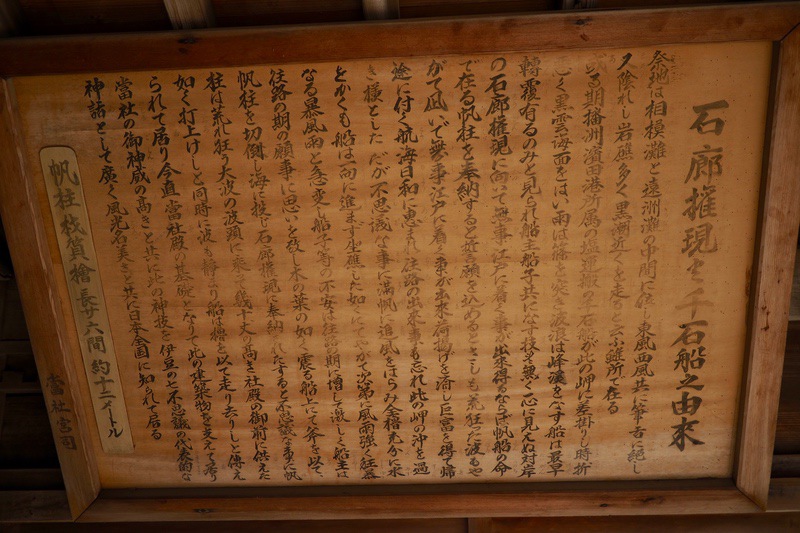 石廊権現と千石船之由来
此地は相模灘と遠洲灘の中間に位し東風西風共に筆舌に絶し
又陰れし岩礁多く黒潮近くを走ると云ふ難所で在る
或る期播州濱田港所属の塩運搬の千石船が此の岬に差掛りし時折
悪しく黒雲海面をはい雨は篠を突き波浪は峰渓をなす船は最早
轉覆有るのみと見られ船主船子共になす技も無く正に見えぬ対岸
の石廊権現に向いて無事江戸に着く事が出来得るならば帆船の命
で在る帆柱を奉納すると誓願を込めるとさしも荒狂た波もや
がて凪いで無事江戸に着く事が出来荷揚げを済し巨富を得て帰
途に付く航海日和に恵まれ往路の出来事も忘れ此の岬の沖を過
き様とした だが不思議な事に満帆に追風をはらみ全櫓充分に水
をかくも船は一向に進ます坐礁した如くにてやがて次第に風雨強く狂暴
なる暴風雨と急変し船子等の不安は往路の期に増して激しく船主は
往路の期の願事に思いを致し木の葉の如く震る船にて斧を以て
帆柱を切倒し海に投じ石廊権現に奉納 すると不思議な事に帆
柱は荒れ狂う大波の波頭に乗って幾十丈の高き社殿の御前に供えた
如く打上けしと同時に波も静まり船は櫓を以て走り去りしと傳え
られて居り今直當社殿の基礎となりて此の建築物を支えて居り
當社の御神威の高さと共に此の神技を伊豆の七不思議の代表的な
神話として廣く風光名美さと共に日本全国に知られて居る
帆柱 材質檜 長サ六間 約十二メートル
當社宮司